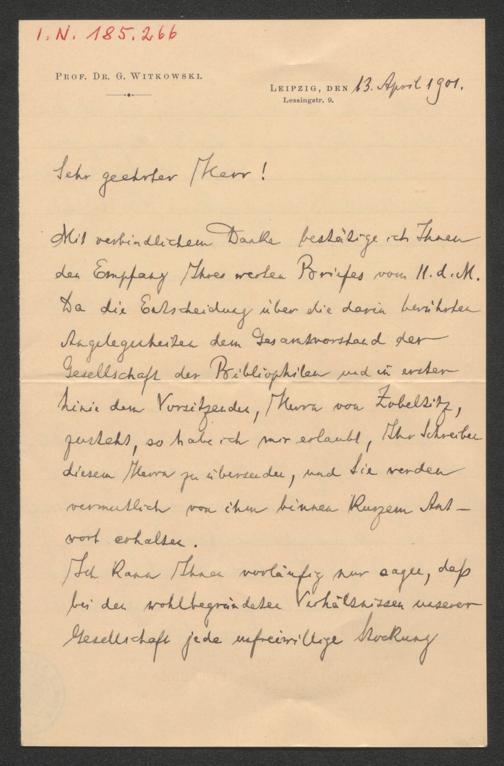 I. N. 185.266
PROF. DR. G. WITKOWSKI.
LEIPZIG, DEN 13. April 1901.
Lessingstr. 9.
Sehr geehrter Herr!
Mit verbindlichem Danke bestätige ich Ihnen
den Empfang Ihres werten Briefes vom 11. d. M.
Da die Entscheidung über die darin berührten
Angelegenheiten dem Gesamtvorstand der
Gesellschaft der Bibliophilen und in erster
Linie dem Vorsitzenden, Herrn von Zobeltitz,
zusteht, so habe ich mir erlaubt, Ihr Schreiben
diesem Herrn zu übersenden, und Sie werden
vermutlich von ihm binnen Kurzem Ant-
wort erhalten.
Ich kann Ihnen vorläufig nur sagen, daß
bei den wohlbegründeten Verhältnissen unserer
Gesellschaft jede unfreiwillige Stockung